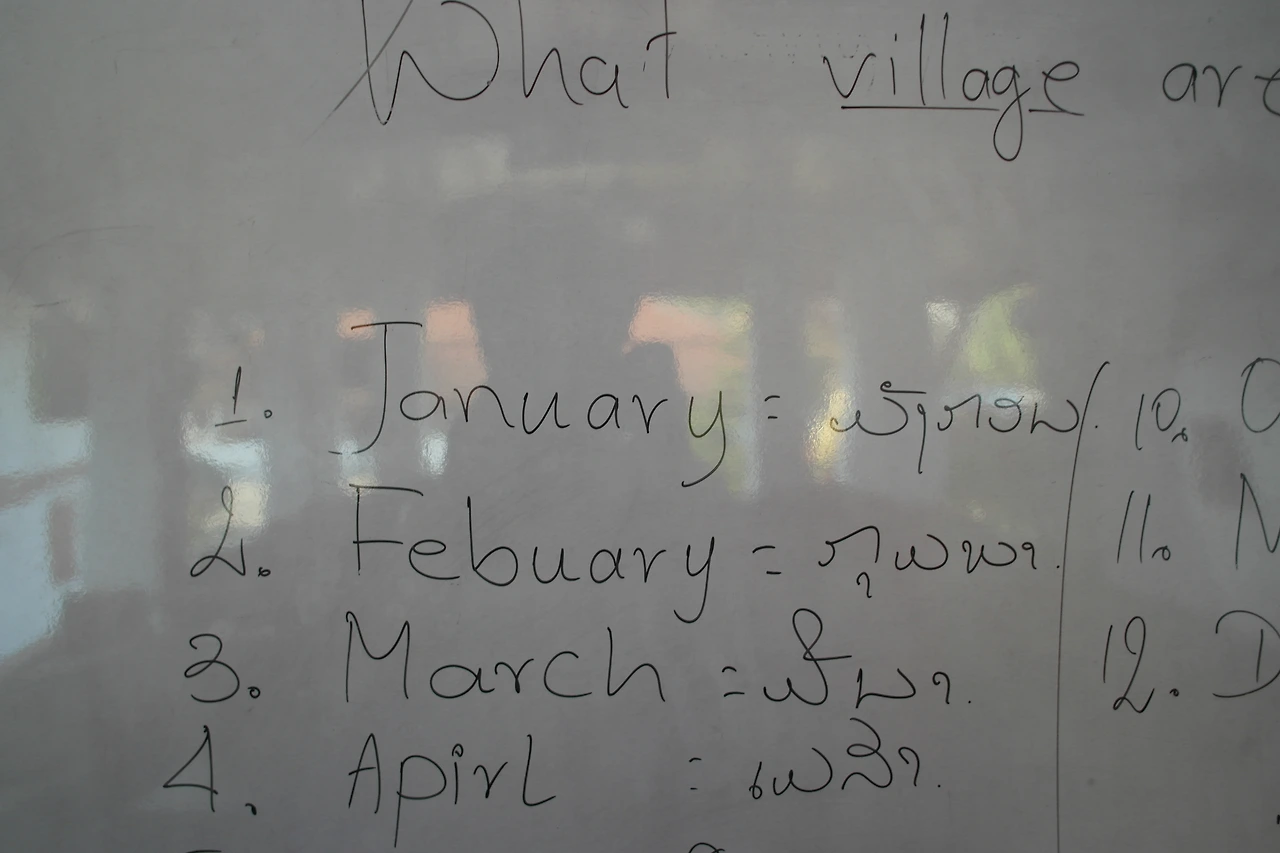 What village are
1. January = ມັງກອນ. 10. O
2. Febuary = ກຸມພາ. 11. N
3. March = ມີນາ. 12. D
4. Apirl : ເມສາ.